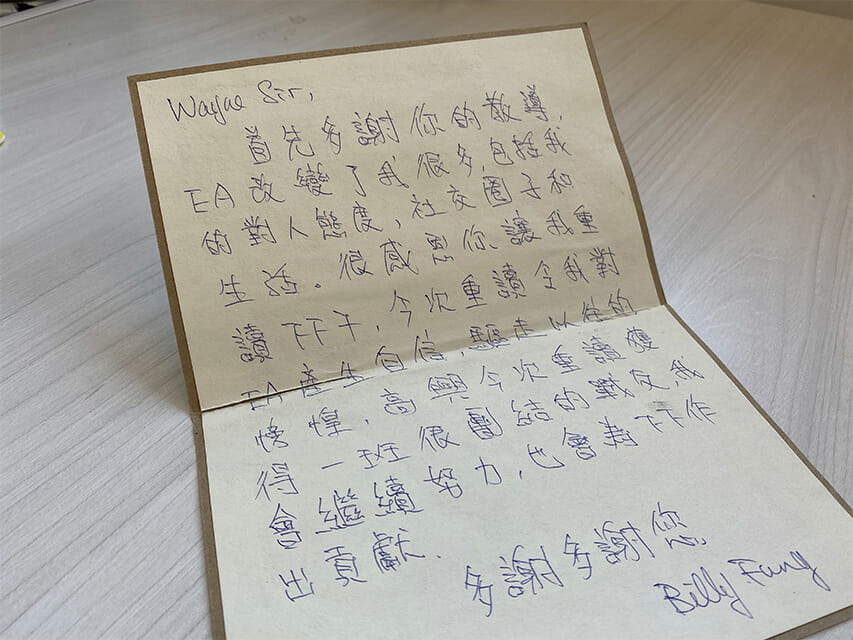 Wayne Sir,
首先多謝你的教導,
EA改變了我很多,包括我
的對人態度,社交圈子和
生活。很感恩你讓我重
讀,今次重讀令我對
EA產生自信,驅走以往的
惶,高興今次重讀獲
得一班很團結的戰友,我
會繼續努力,也會對作
出貢獻.
多謝多謝您,
Billy Fung